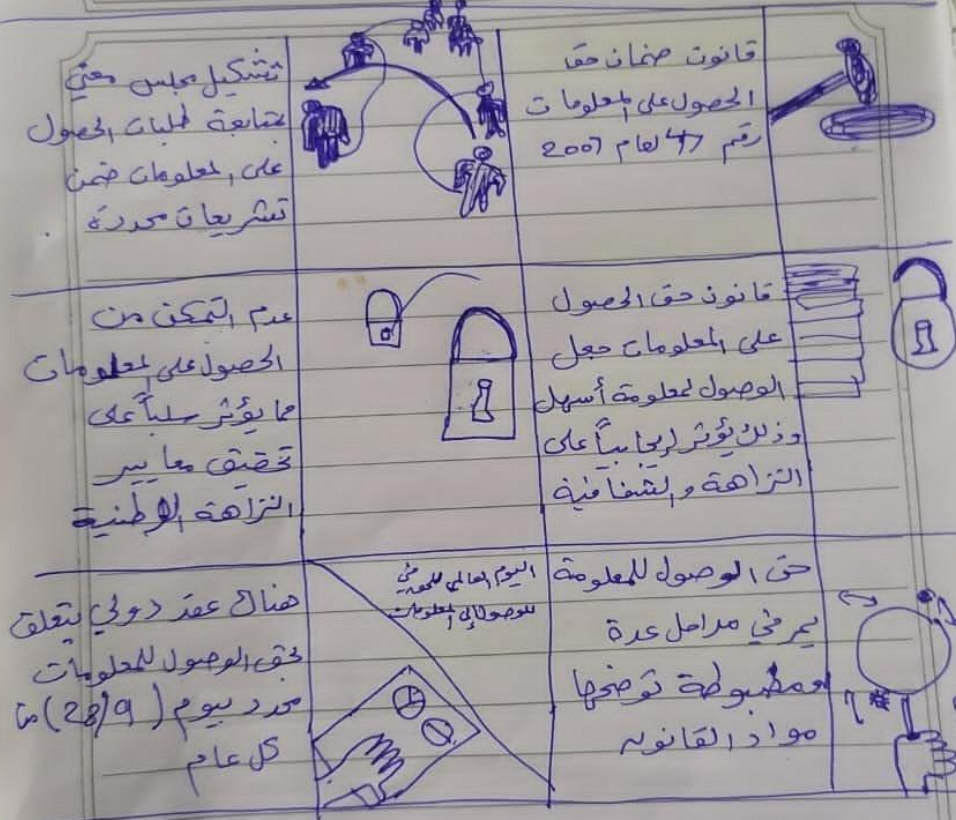 قانون ضمان حق
الحصول على المعلومات
رقم 47 لعام 2007
تشكيل مجلس معني
بمتابعة طلبات الحصول
على المعلومات ضمن
تشريعات محددة .
قانون حق الحصول
على المعلومات جعل
الوصول لمعلومة أسهل
وذلك يؤثر إيجابياً على
النزاهة والشفافية
عدم التمكن من
الحصول على المعلومات
مما يؤثر سلباً على
تحقيق معايير
النزاهة الوطنية
حق الوصول للمعلومة
يمر في مراحل عدة
ومضبوطة توضحها
مواد القانون
اليوم العالمي للحق في
الوصول إلى المعلومات
هناك عقد دولي يتعلق
بحق الوصول للمعلومات
محدد بيوم (28/9) من
كل عام